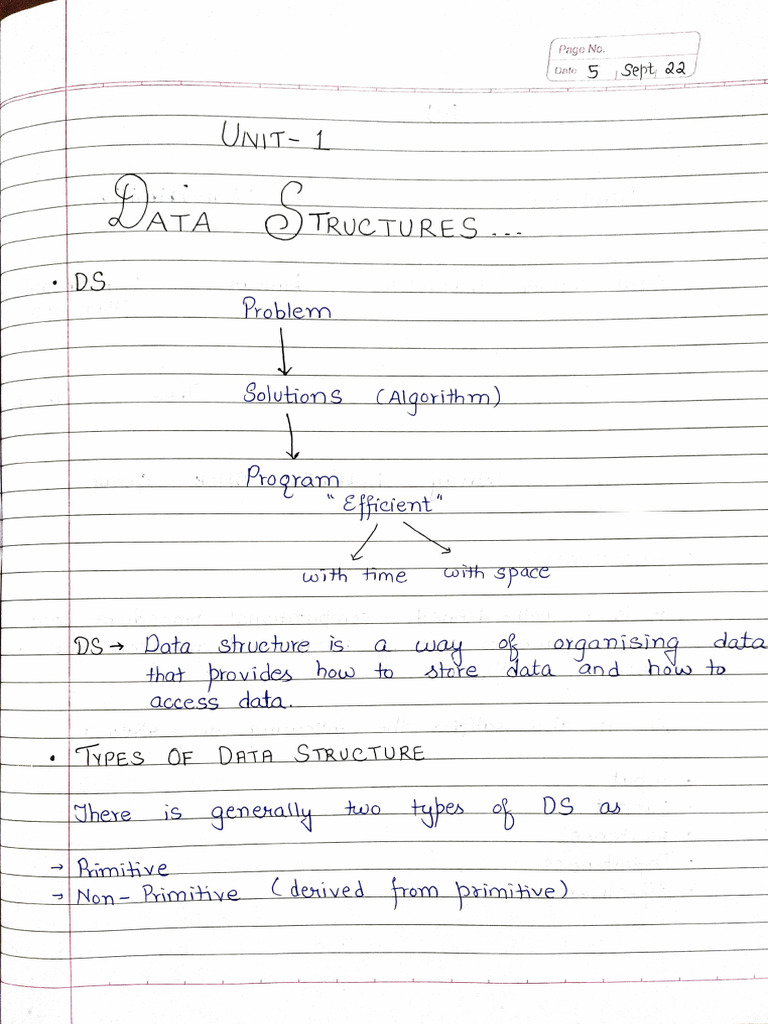 Page No.
Date 5 Sept 22
UNIT - 1
DATA STRUCTURES...
• DS
Problem
Solutions (Algorithm)
Program
"Efficient"
with time with space
DS → Data structure is a way of organising data
that provides how to store data and how to
access data.
• TYPES OF DATA STRUCTURE
There is generally two types of DS as
→ Primitive
→ Non-Primitive (derived from primitive)